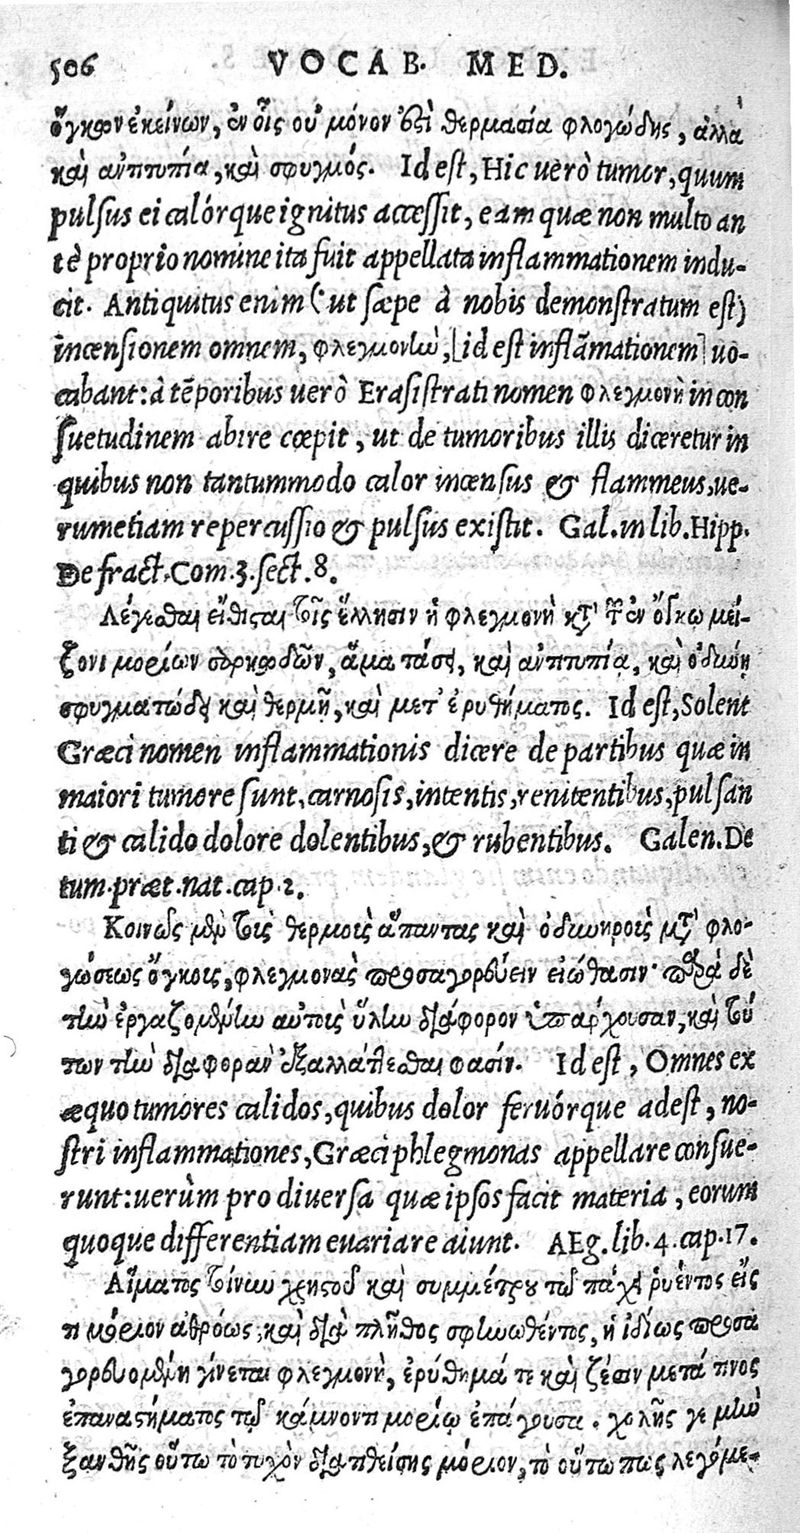 506 VOCAB. MED.
ὄγκων ἐκείνων, ἐν οἷς οὐ μόνον ἐστὶ θερμασία φλογώδης, ἀλλὰ
καὶ ἀντιτυπία, καὶ σφυγμός. Id est, Hic uerò tumor, quum
pulsus ei calórque ignitus accessit, eam quæ non multo an
tè proprio nomine ita fuit appellata inflammationem indu-
cit. Antiquitus enim (ut sæpe à nobis demonstratum est)
incensionem omnem, φλεγμονὴν, [id est inflāmationem] uo-
cabant: à tēporibus uerò Erasistrati nomen φλεγμονὴ in con
suetudinem abire cœpit, ut de tumoribus illis diceretur in
quibus non tantummodo calor incensus & flammeus, ue-
rumetiam repercussio & pulsus existit. Gal. in lib. Hipp.
De fract. Com. 3. sect. 8.
Λέγεσθαι εἴθισται τοῖς ἕλλησιν ἡ φλεγμονὴ κατὰ τῶν ἐν ὄγκῳ μεί-
ζονι μορίων σαρκωδῶν, ἅμα τάσει, καὶ ἀντιτυπία, καὶ ὀδύνῃ
σφυγματώδει καὶ θερμῇ, καὶ μετ' ἐρυθήματος. Id est, Solent
Græci nomen inflammationis dicere de partibus quæ in
maiori tumore sunt, carnosis, intentis, renitentibus, pulsan
ti & calido dolore dolentibus, & rubentibus. Galen. De
tum. præt. nat. cap. 2.
Κοινῶς μὲν τοὺς θερμοὺς ἅπαντας καὶ ὀδυνηροὺς μετὰ φλο-
γώσεως ὄγκους, φλεγμονὰς προσαγορεύειν εἰώθασιν· παρὰ δὲ
τὴν ἐργαζομένην αὐτοὺς ὕλην διάφορον ὑπάρχουσαν, καὶ τού
των τὴν διαφορὰν ἐξαλλάττεσθαι φασίν. Id est, Omnes ex
æquo tumores calidos, quibus dolor feruórque adest, no-
stri inflammationes, Græci phlegmonas appellare consue-
runt: uerùm pro diuersa quæ ipsos facit materia, eorum
quoque differentiam euariare aiunt. AEg. lib. 4. cap. 17.
Αἵματος τοίνυν χρηστοῦ καὶ συμμέτρου τῷ πάχει ῥυέντος εἴς
τι μόριον ἀθρόως, καὶ διὰ πλῆθος σφηνωθέντος, ἡ ἰδίως προσα
γορευομένη γίνεται φλεγμονὴ, ἐρύθημά τε καὶ ζέσιν μετά τινος
ἐπαναστήματος τῷ κάμνοντι μορίῳ ἐπάγουσα. χολῆς γε μὴν
ξανθῆς οὕτω τὸ τυχὸν διαθείσης μόριον, τὸ οὕτω πως λεγόμε-